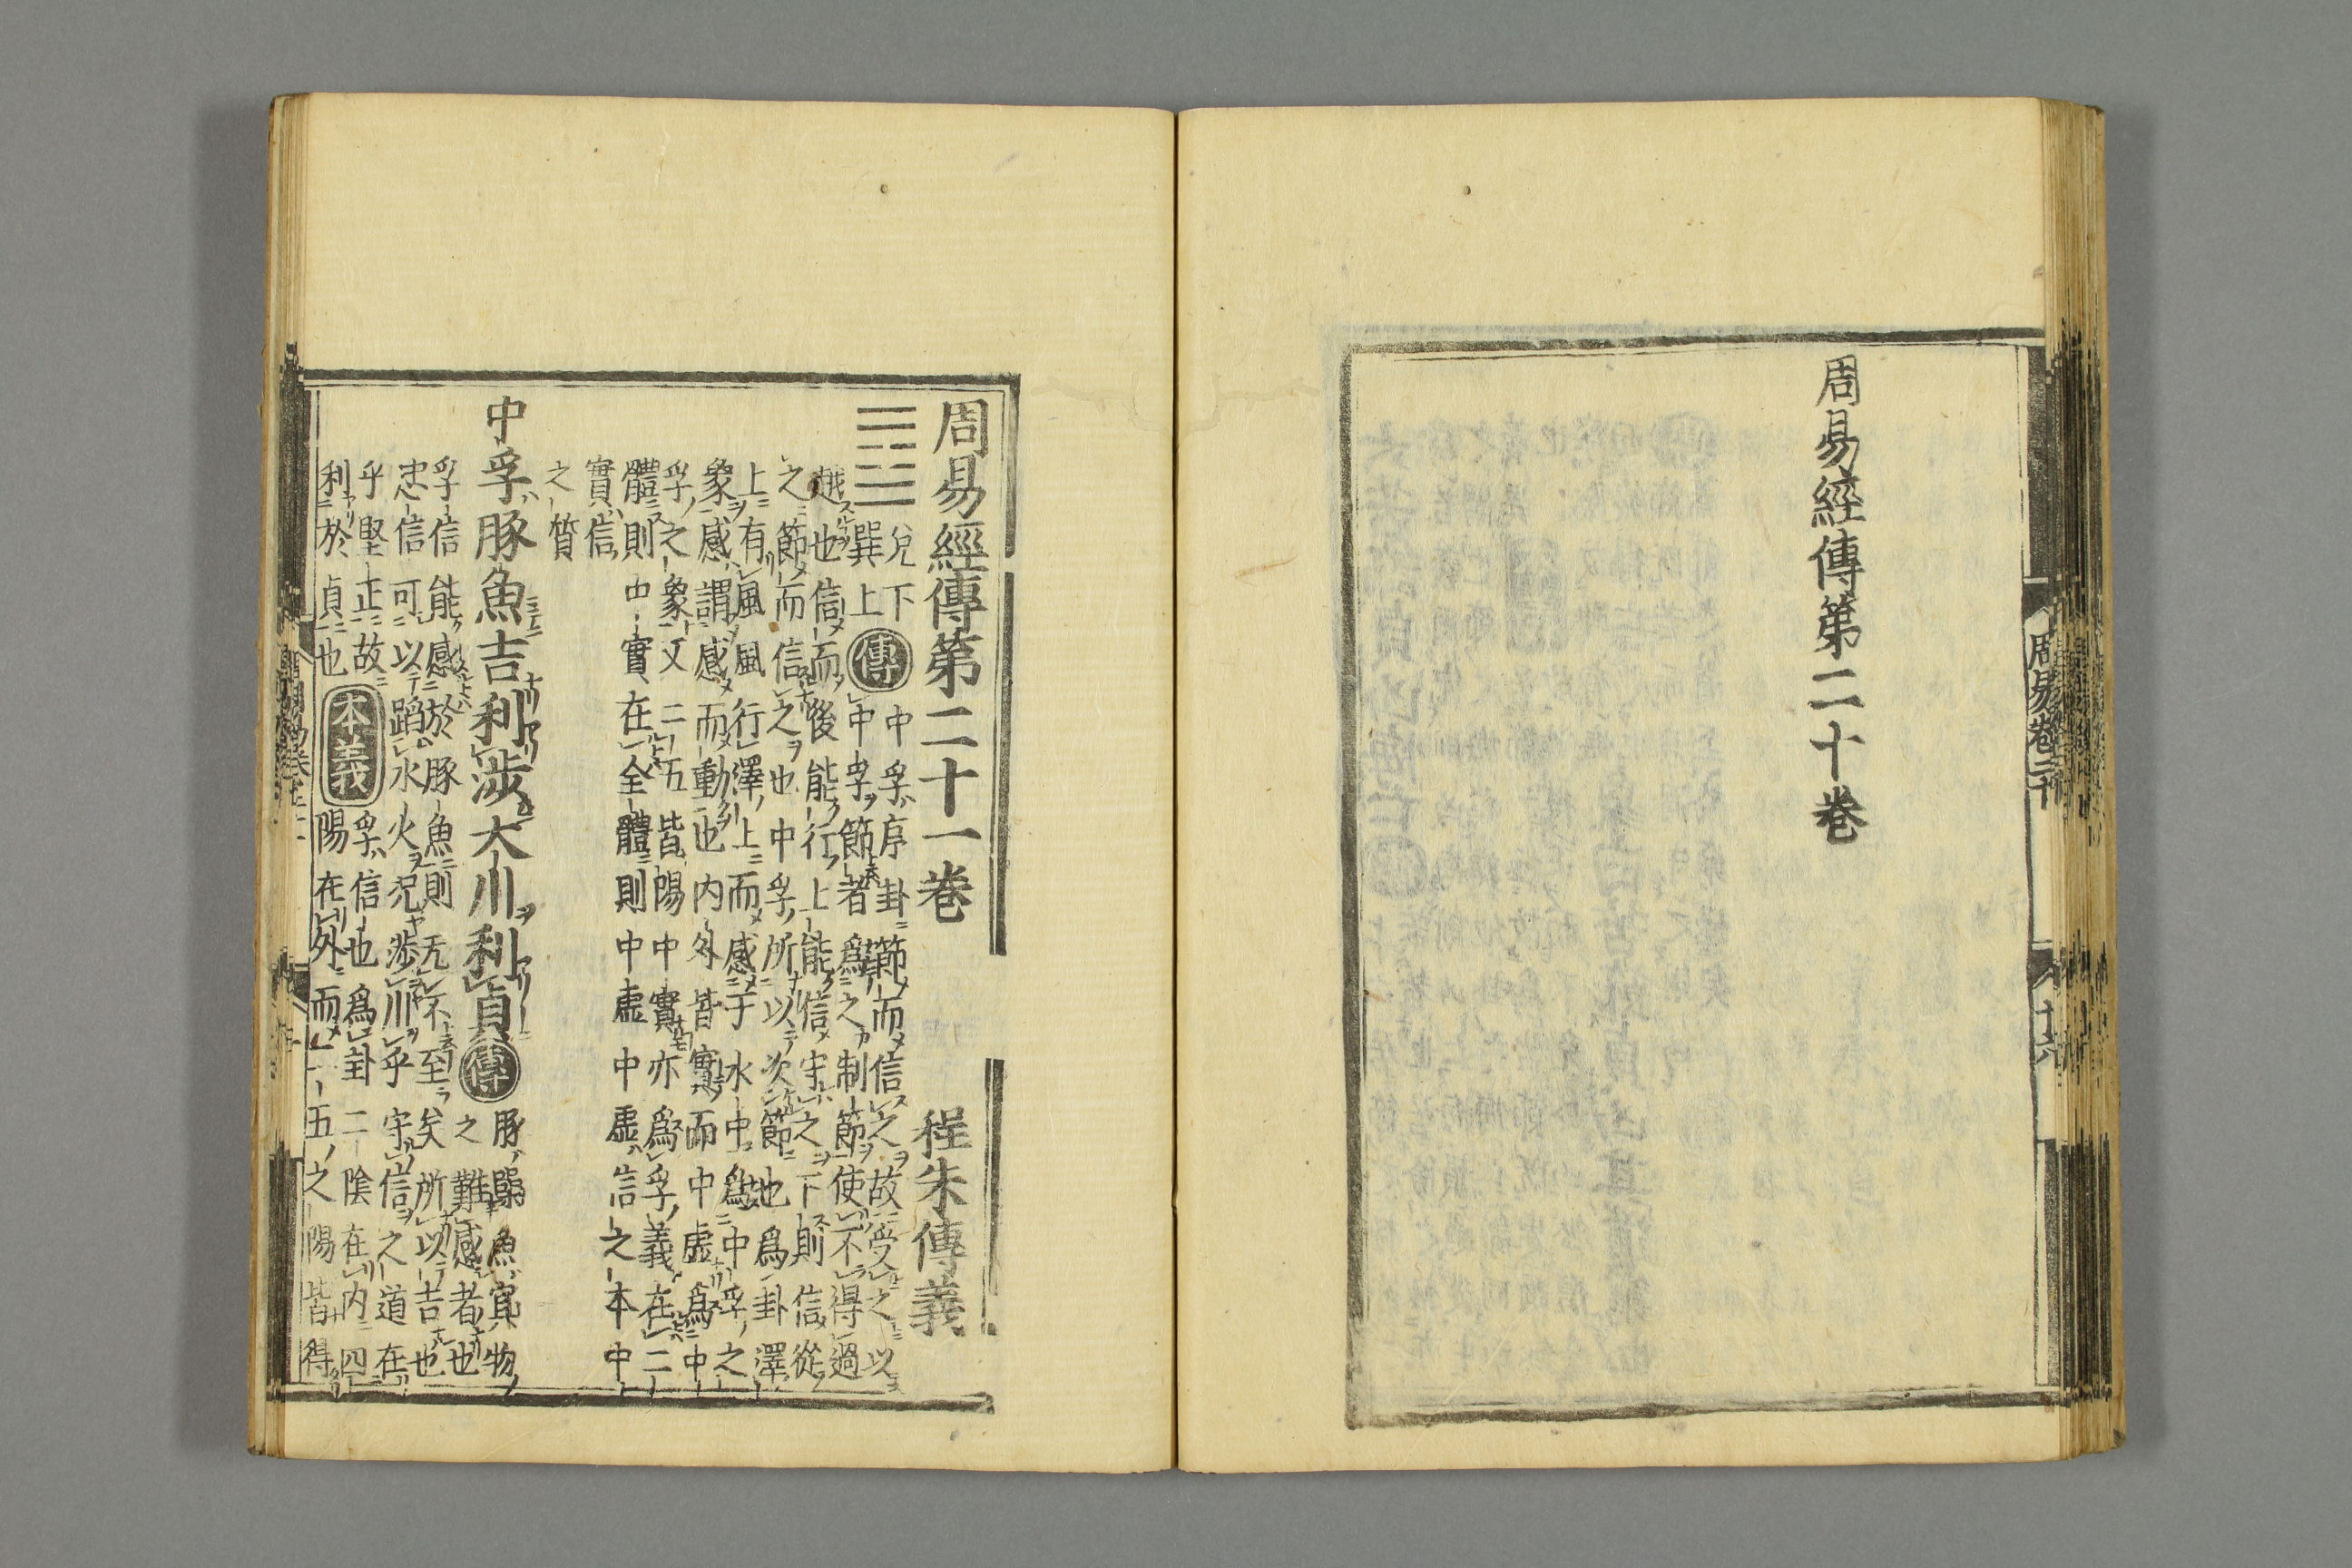 周易經傳第二十巻
周易巻二十
十六
周易經傳第二十一巻　程朱傳義
兌下
巽上
傳
中孚序卦節而信之故受之以
中孚節者爲之制節使不得過
越也信而後能行上能信守之下則信從
之節而信之也中孚所以次節也爲卦澤
上有風風行澤上而感于水中爲中孚之
象感謂感而動也内外皆實而中虚爲中
孚之象又二五皆陽中實亦爲孚義在二
體則中實在全體則中虚中虚信之本中
實信
之質
中孚豚魚吉利渉大川利貞
傳
豚躁魚冥物
之難感者也
孚信能感於豚魚則无不至矣所以吉也
忠信可以蹈水火況渉川乎守信之道在
乎堅正故
利於貞也
本義
孚信也爲卦二陰在内四
陽在外而二五之陽皆得